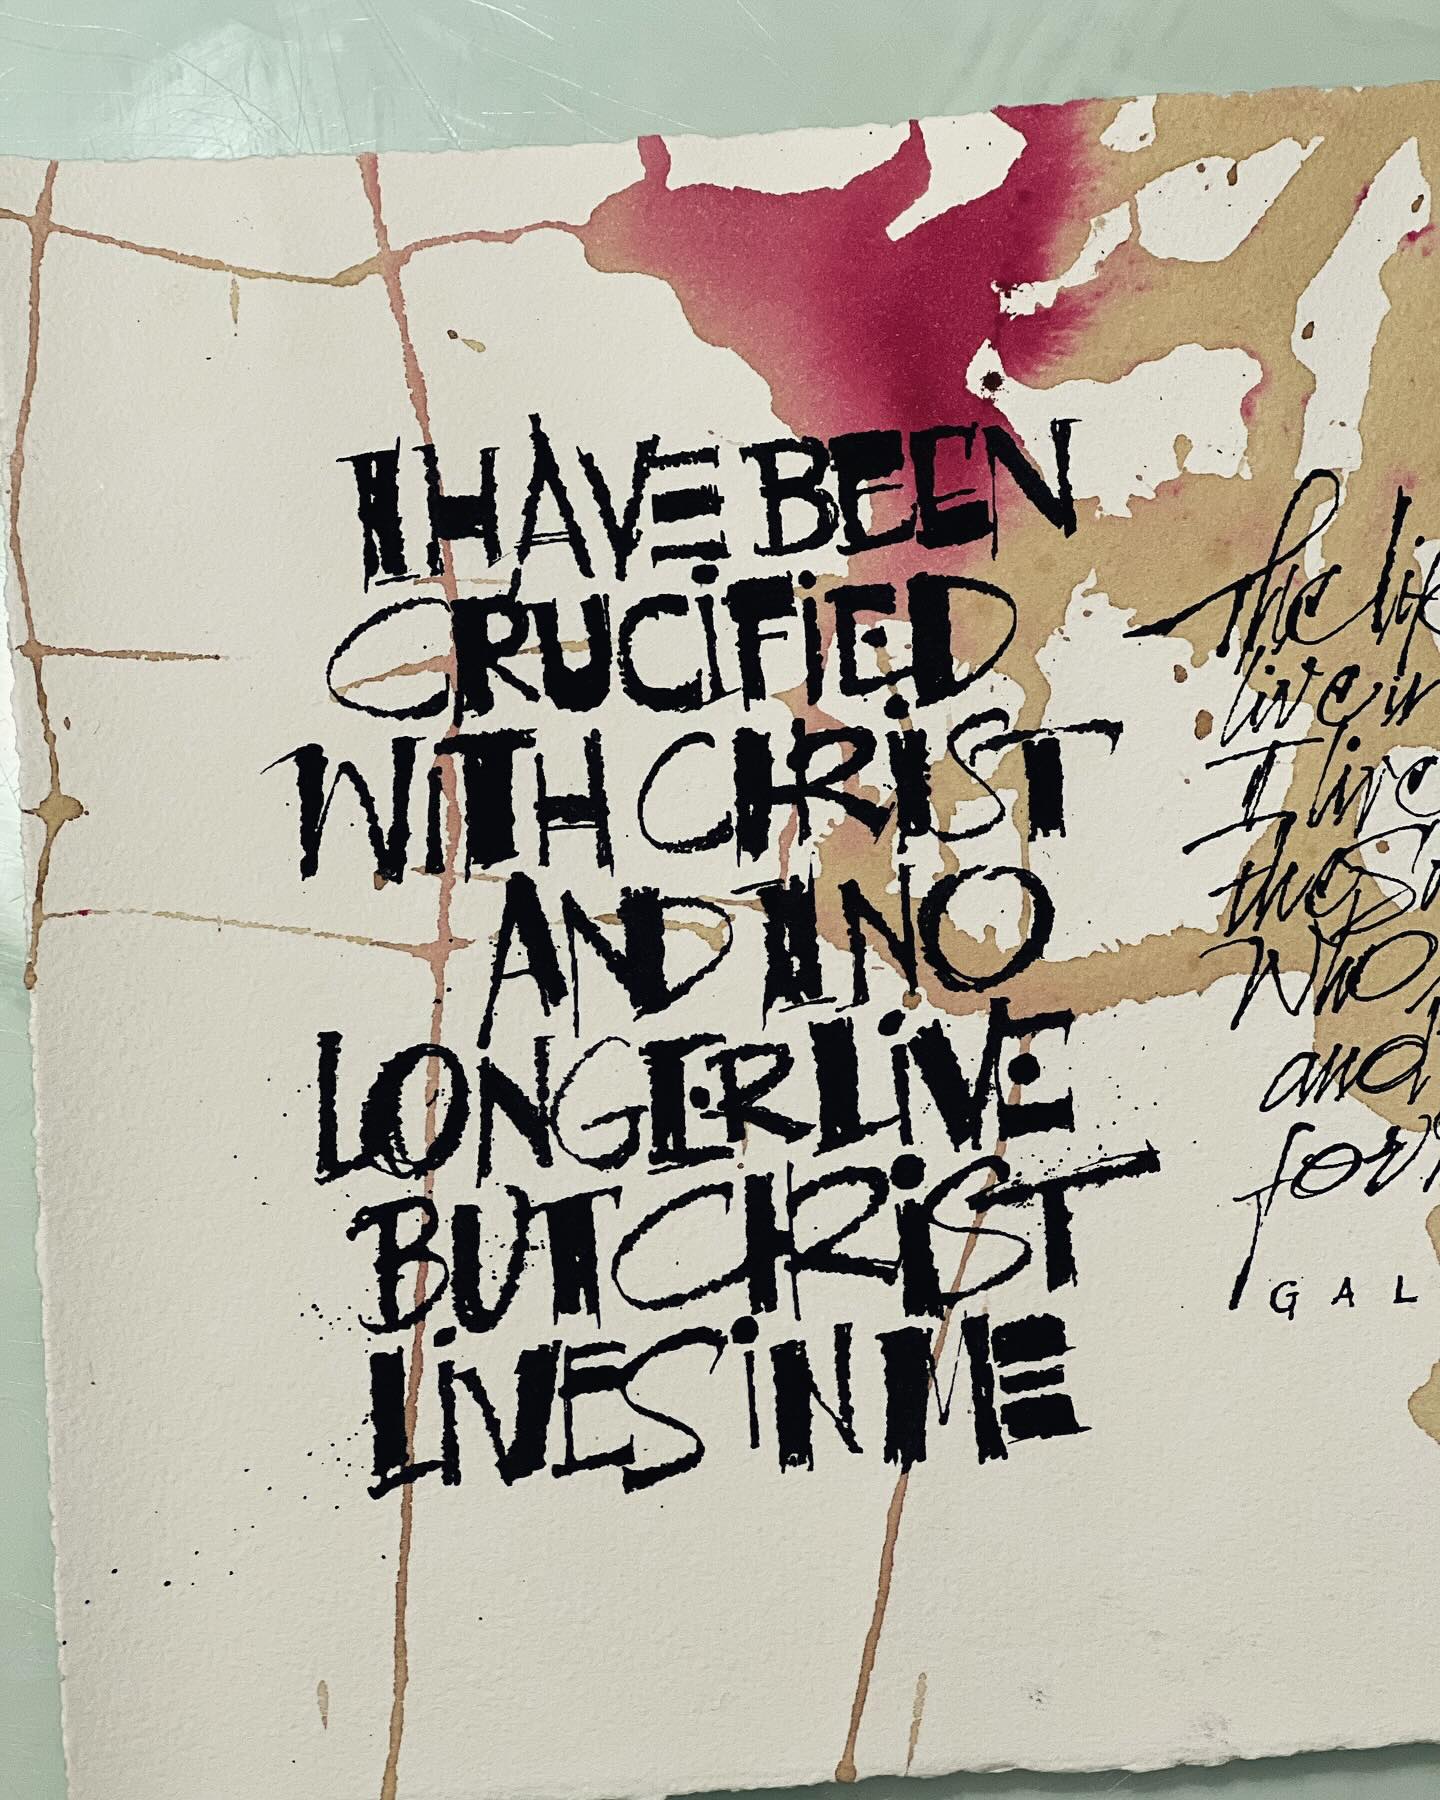 I HAVE BEEN
CRUCiFiED
WiTH CHRiST
AND I NO
LONGER LiVE
BUT CHRiST
LiVES iN ME
The life
live in
I live
the So
Who
and
for
GAL